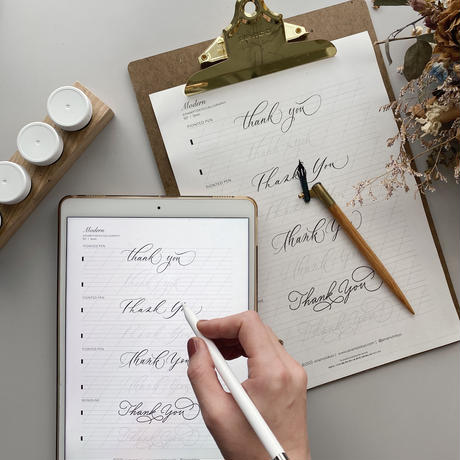 Modern
POINTED PEN
thank you
POINTED PEN
Thank you
Thank you
Thank You
Modern
POINTED PEN
thank you
POINTED PEN
Thank Yo
POINTED PEN
Thank You
MONOLINE
Thank You